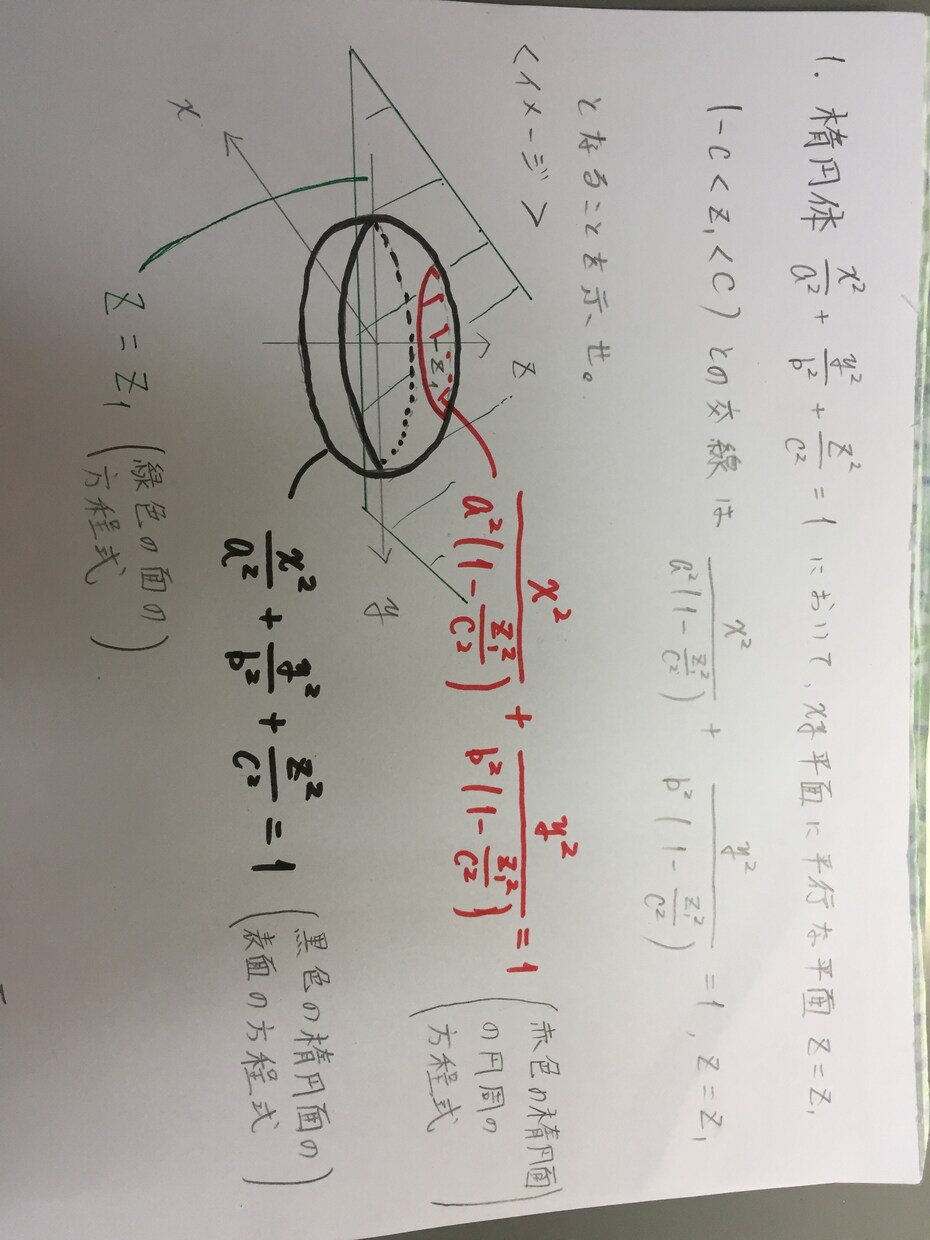 1. 楕円体 x²/a² + y²/b² + z²/c² = 1 において、xy平面に平行な平面 z=z₁
(-c<z₁<c) との交線は x²/a²(1-z₁²/c²) + y²/b²(1-z₁²/c²) = 1, z=z₁
となることを示せ。
<イメージ>
z
z₁
y
x
x²/a²(1-z₁²/c²) + y²/b²(1-z₁²/c²) = 1
(赤色の楕円面
の円周の
方程式)
x²/a² + y²/b² + z²/c² = 1
(黒色の楕円面の
表面の方程式)
z=z₁
(緑色の面の
方程式)